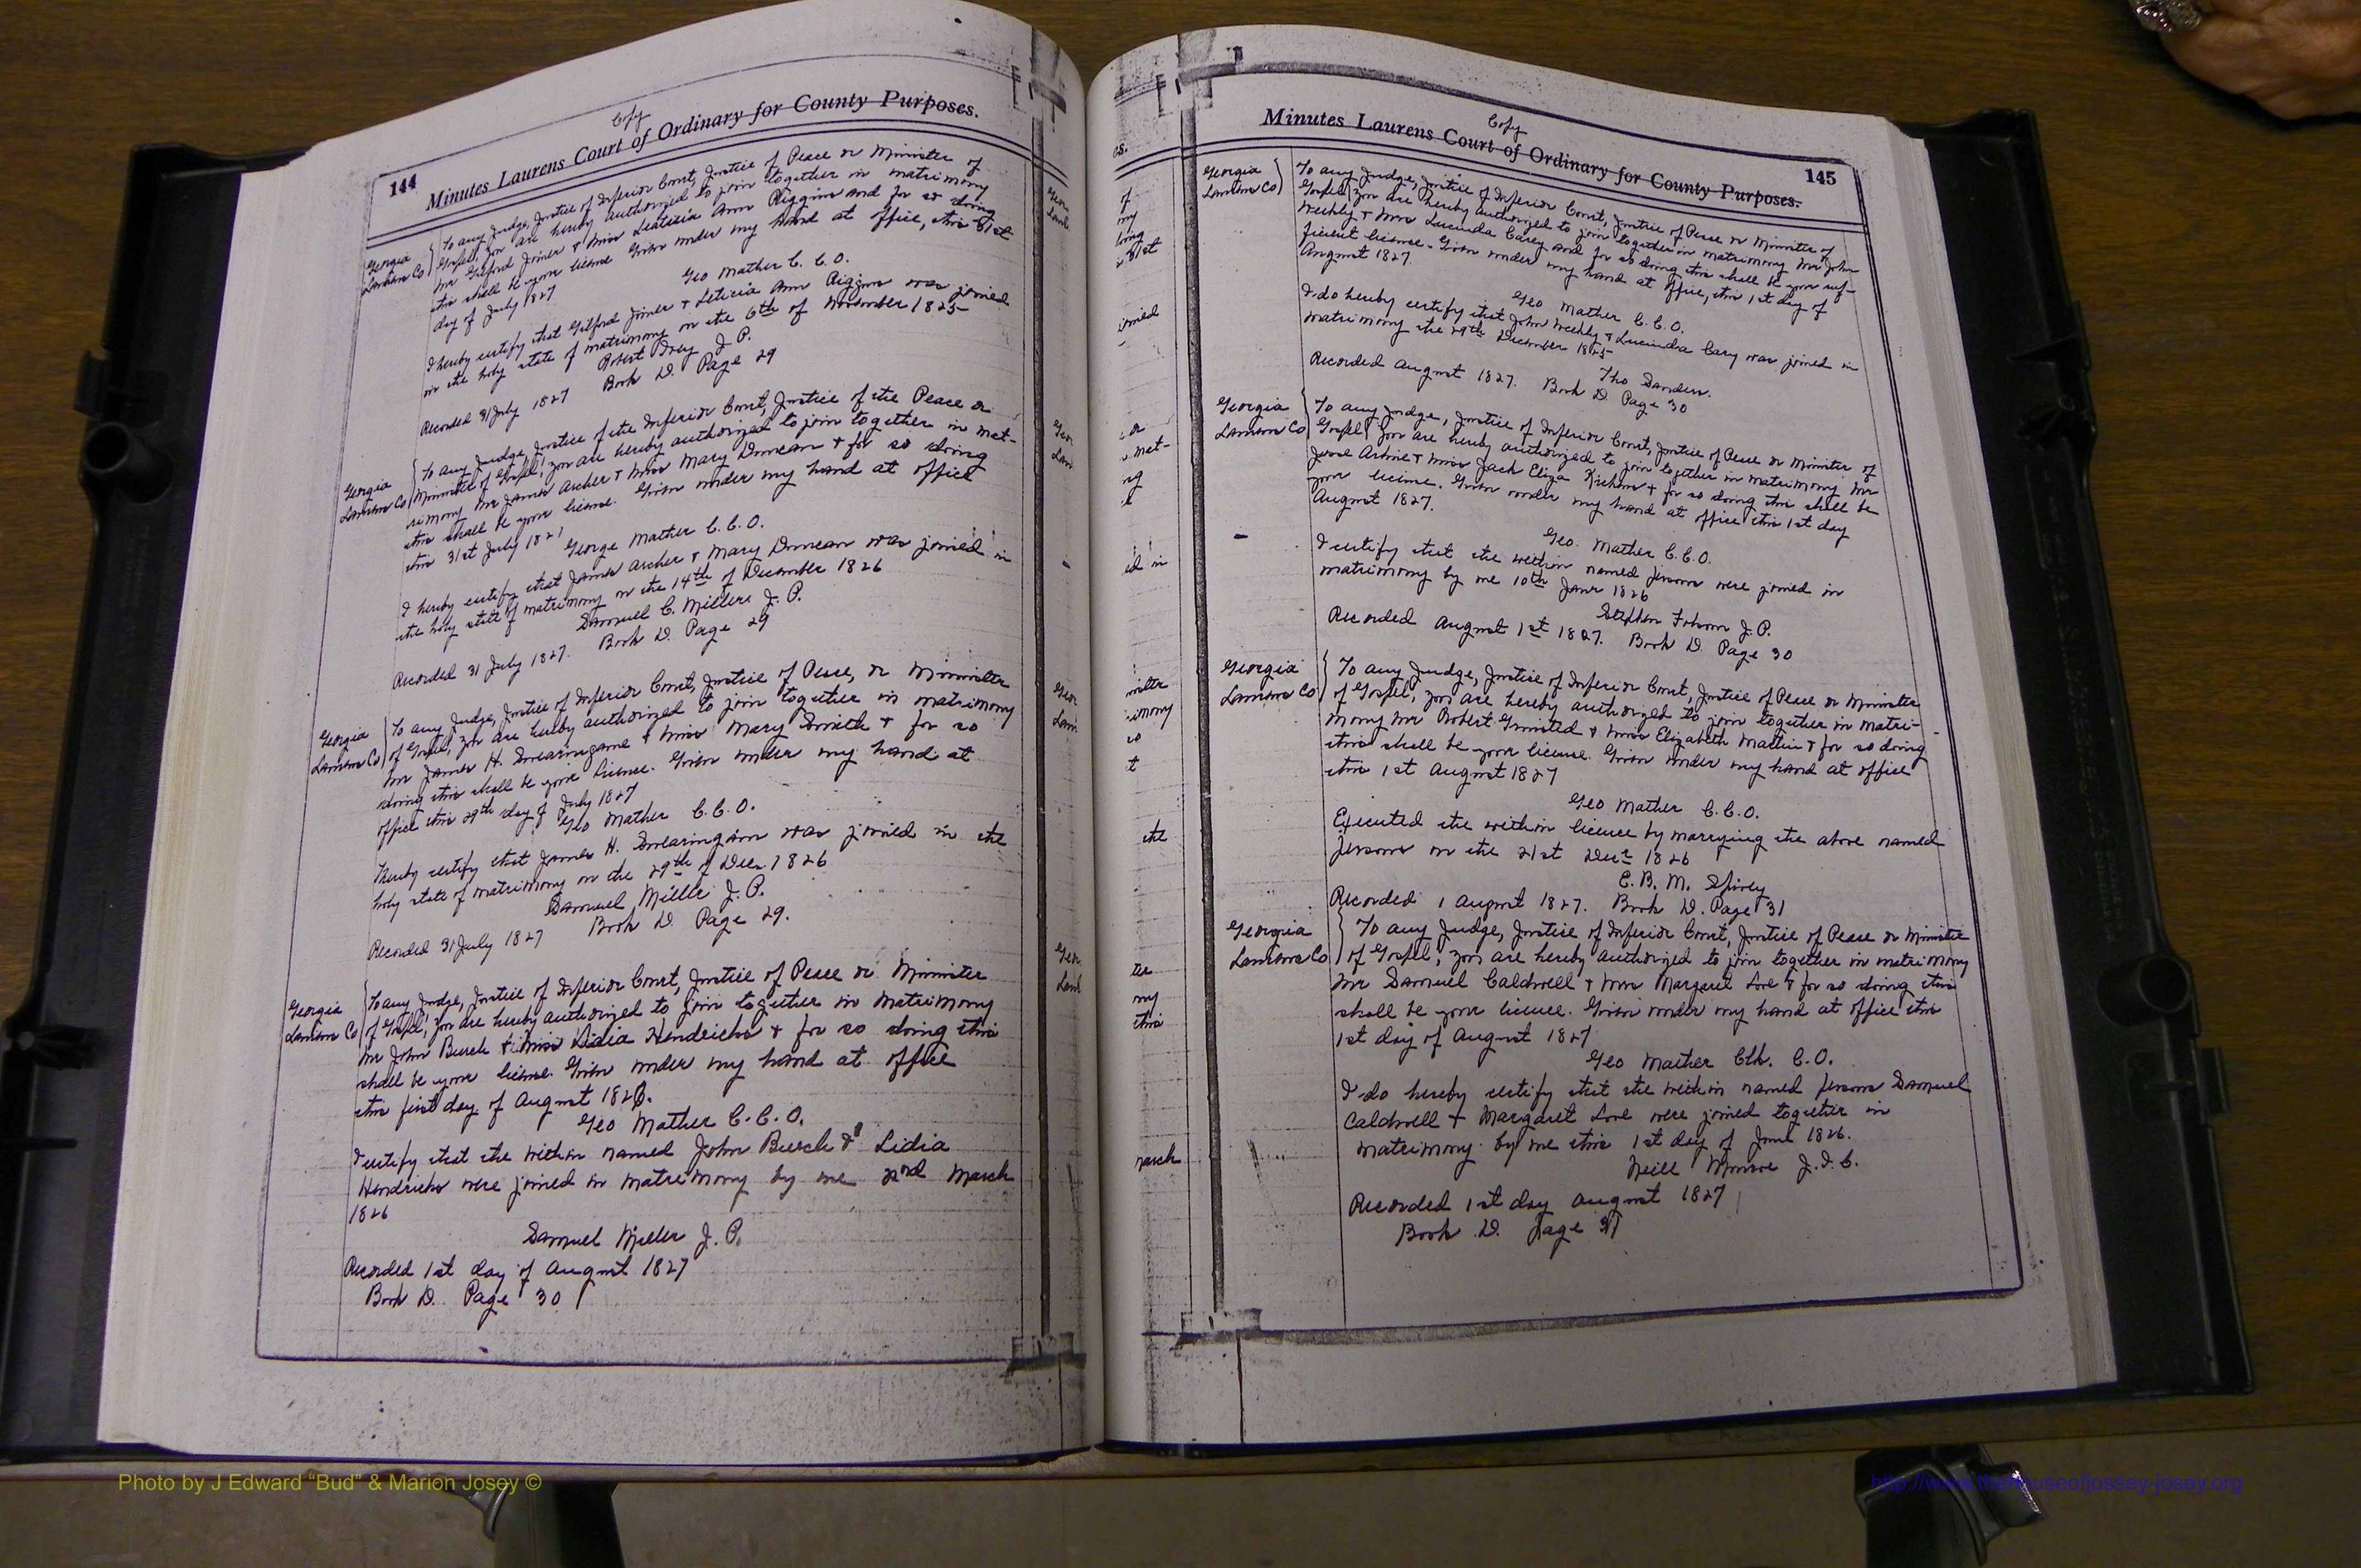 Copy
144 Minutes Laurens Court of Ordinary for County Purposes.
Georgia
Laurens Co
To any Judge, Justice of Inferior Court, Justice of Peace or Minister of
Gospel, you are hereby authorized to join together in matrimony
Mr Gilford Joiner & Miss Leaticia Ann Riggins and for so doing
this shall be your license Given under my hand at office, this 31st
day of July 1827
Geo Mather C. C. O.
I hereby certify that Gilford Joiner & Leticia Ann Riggins was joined
in the holy state of matrimony on the 6th of November 1825
Robert Grey J P.
Recorded 31 July 1827 Book D. Page 29
Georgia
Laurens Co
To any Judge, Justice of the Inferior Court, Justice of the Peace or
Minister of Gospel, you are hereby authorized to join together in mat-
rimony Mr James Archer & Miss Mary Duncan & for so doing
this shall be your license. Given under my hand at office
this 31st July 1827
George Mather C. C. O.
I hereby certify that James Archer & Mary Duncan was joined in
the holy state of matrimony on the 14th of December 1826
Samuel C. Millers J. P.
Recorded 31 July 1827. Book D. Page 29
Georgia
Laurens Co
To any Judge, Justice of Inferior Court, Justice of Peace, or Minister
of Gospel, you are hereby authorized to join together in matrimony
Mr James H. Swearingame & Miss Mary Smith & for so
doing this shall be your license. Given under my hand at
office this 29th day of July 1827
Geo Mather C. C. O.
I hereby certify that James H. Swearingain was joined in the
holy state of matrimony on the 29th of Dec. 1826
Samuel Miller J. P.
Recorded 31 July 1827 Book D. Page 29.
Georgia
Laurens Co
To any Judge, Justice of Inferior Court, Justice of Peace or Minister
of Gospel, you are hereby authorized to join together in Matrimony
Mr John Burch & Miss Lidia Hendricks & for so doing this
shall be your license. Given under my hand at office
this first day of August 1826.
Geo Mather C. C. O.
I certify that the within named John Burch & Lidia
Hendricks were joined in matrimony by me 2nd March
1826
Samuel Miller J. P.
Recorded 1st day of August 1827
Book D. Page 30
Copy
Minutes Laurens Court of Ordinary for County Purposes. 145
Georgia
Laurens Co
To any Judge, Justice of Inferior Court, Justice of Peace or Minister of
Gospel, you are hereby authorized to join together in matrimony Mr John
Weekly & Miss Lucinda Carey and for so doing this shall be your suf-
ficient license. Given under my hand at office, this 1st day of
August 1827.
Geo Mather C. C. O.
I do hereby certify that John Weekly & Lucinda Cary was joined in
matrimony the 29th December 1825
Tho Sanders.
Recorded August 1827. Book D. Page 30
Georgia
Laurens Co
To any Judge, Justice of Inferior Court, Justice of Peace or Minister of
Gospel, you are hereby authorized to join together in matrimony Mr
Jesse Ardine & Miss Jack Eliza & for so doing this shall be
your license. Given under my hand at office this 1st day
August 1827.
Geo. Mather C. C. O.
I certify that the within named persons were joined in
matrimony by me 10th Janr 1826
Stephen Folsom J. P.
Recorded August 1st 1827. Book D. Page 30
Georgia
Laurens Co
To any Judge, Justice of Inferior Court, Justice of Peace or Minister
of Gospel, you are hereby authorized to join together in matri-
mony Mr Robert Grinsted & Miss Elizabeth Mathis & for so doing
this shall be your license. Given under my hand at office
this 1st August 1827
Geo Mather C. C. O.
Executed the within licence by marrying the above named
persons on the 21st Decr 1826
E. B. M. Spivey
Recorded 1 August 1827. Book D. Page 31
Georgia
Laurens Co
To any Judge, Justice of Inferior Court, Justice of Peace or Minister
of Gospel, you are hereby authorized to join together in matrimony
Mr Samuel Caldwell & Miss Margaret Love & for so doing this
shall be your licence. Given under my hand at office this
1st day of August 1827
Geo Mather Clk. C. O.
I do hereby certify that the within named persons Samuel
Caldwell & Margaret Love were joined together in
matrimony by me this 1st day of June 1826.
Neill Munroe J. I. C.
Recorded 1st day August 1827
Book D. Page 31
Photo by J Edward “Bud” & Marion Josey ©
http://www.thehouseofjossey-josey.org